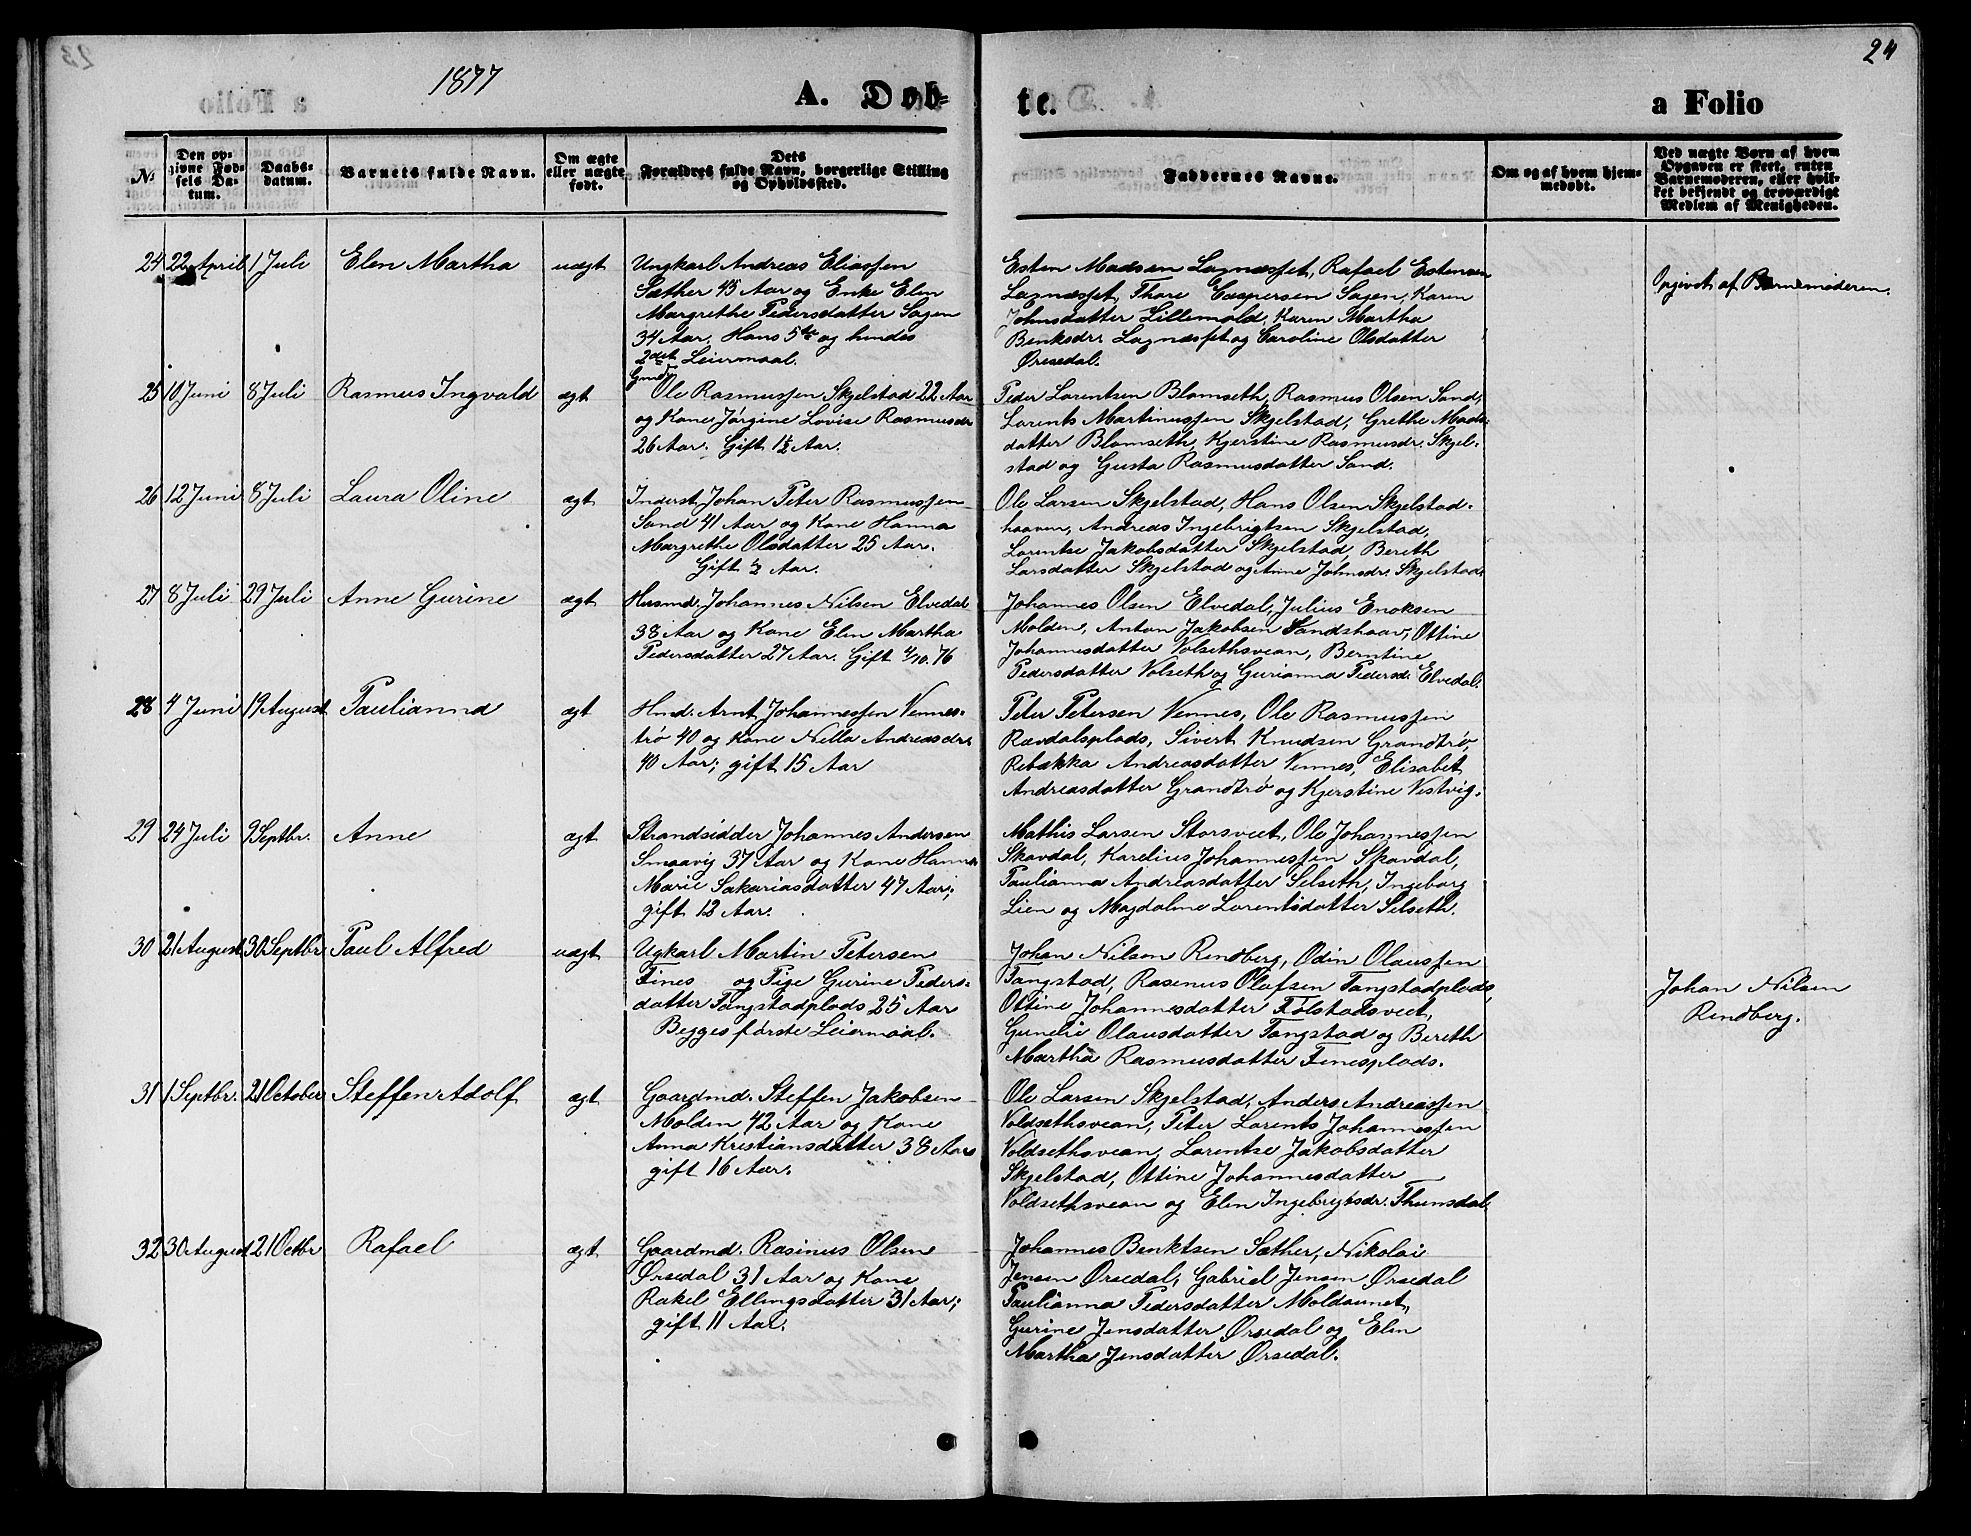 1877
24
A. Døb-
te.
a Folio
No
Den op-
givne Fød-
sels Da-
tum.
Daabs-
datum.
Barnets fulde Navn.
Om ægte
eller uægte
født.
Dets
Forældres fulde Navn, borgerlige Stilling
og Opholdssted.
Faddernes Navne.
Om og af hvem hjem-
medøbt.
Ved uægte Børn af hvem
Opgaven er skeet, enten
Barnemoderen, eller hvil-
ket bekjendt og troværdigt
Medlem af Menigheden.
24 22 April 1 Juli Elen Martha uægt
Ungkarl Andreas Eliassen
Sæther 45 Aar og Enke Elen
Margrethe Pedersdatter Sagen
34 Aar. Hans 5te og hendes
2det Leiermaal.
Esten Madsen Lagnæsset, Rafael Estensen
Lagnæsset, Thore Caspersen Sagen, Karen
Johnsdatter Lillemold, Karen Martha
Benksdr. Lagnæsset og Caroline Olsdatter
Ørsedal.
Opgivet af Barnemoderen.
25 10 Juni 8 Juli Rasmus Ingvald ægt
Gmd
Ole Rasmussen Skjelstad 22 Aar
og Kone Jørgine Lovise Rasmusdr
26 Aar. Gift 1½ Aar.
Peder Lorentsen Blomseth, Rasmus Olsen Sand,
Lorents Martinussen Skjelstad, Grethe Mads-
datter Blomseth, Kjerstine Rasmusdr. Skjel-
stad og Gusta Rasmusdatter Sand.
26 12 Juni 8 Juli Laura Oline ægt
Inderst Johan Peter Rasmussen
Sand 41 Aar og Kone Hanna
Margrethe Olsdatter 25 Aar.
Gift ½ Aar.
Ole Larsen Skjelstad, Hans Olsen Skjelstad-
haaven, Andreas Ingebrigtsen Skjelstad,
Lorentse Jakobsdatter Skjelstad, Bereth
Larsdatter Skjelstad og Anne Johnsdr. Skjelstad.
27 8 Juli 29 Juli Anne Gurine ægt
Husmd. Johannes Nilsen Elvedal
38 Aar og Kone Elen Martha
Pedersdatter 27 Aar. Gift 4/10. 76
Johannes Olsen Elvedal, Julius Enoksen
Molden, Anton Jakobsen Sandshaav, Ottine
Johannesdatter Volsethsvean, Berntine
Pedersdatter Volseth og Gurianna Pedersd. Elvedal.
28 4 Juni 19 August Paulianna ægt
Hmd. Arnt Johannessen Vennes-
trø 40 og Kone Nella Andreasdr.
40 Aar; gift 15 Aar
Peter Petersen Vennes, Ole Rasmussen
Rævdalsplads, Sivert Knudsen Grandtrø,
Rebækka Andreasdatter Vennes, Elisabet
Andreasdatter Grandtrø og Kjerstine Vestvig.
29 24 Juli 9 Septbr. Anne ægt
Strandsidder Johannes Andersen
Smaavig 37 Aar og Kone Hanna
Marie Sakariasdatter 47 Aar;
gift 12 Aar.
Mathis Larsen Storsveet, Ole Johannessen
Skavdal, Karelius Johannessen Skavdal,
Paulianna Andreasdatter Selseth, Ingeborg
Lien og Magdalene Lorentsdatter Selseth.
30 21 August 30 Septbr Paul Alfred uægt
Ugkarl Martin Petersen
Fines og Pige Gurine Peders-
datter Tangstadplads 25 Aar
Begges første Leiermaal.
Johan Nilsen Rendberg, Odin Olaussen
Tangstad, Rasinus Olafsen Tangstadplads,
Ottine Johannesdatter Følstadsveet,
Gunelie Olausdatter Tangstad og Bereth
Martha Rasmusdatter Finesplads.
Johan Nilsen
Rendberg.
31 1 Septbr. 21 October Steffen Adolf ægt
Gaardmd. Steffen Jakobsen
Molden 42 Aar og Kone
Anna Kristiansdatter 38 Aar
gift 16 Aar.
Ole Larsen Skjelstad, Anders Andreassen
Voldsethsvean, Peter Lorents Johannessen
Voldsethsvean, Lorentse Jakobsdatter
Skjelstad, Ottine Johannesdatter
Voldsethsvean og Elen Ingebrigtsdr. Thunsdal
32 30 August 21 Octbr Rafael ægt
Gaardmd. Rasinus Olsen
Ørsedal 31 Aar og Kone
Rakel Ellingsdatter 31 Aar;
gift 11 Aar.
Johannes Benktsen Sæther, Nikolai
Jensen Ørsedal, Gabriel Jensen Ørsedal
Paulianna Pedersdatter Moldaunet,
Gurine Jensdatter Ørsedal og Elen
Martha Jensdatter Ørsedal.